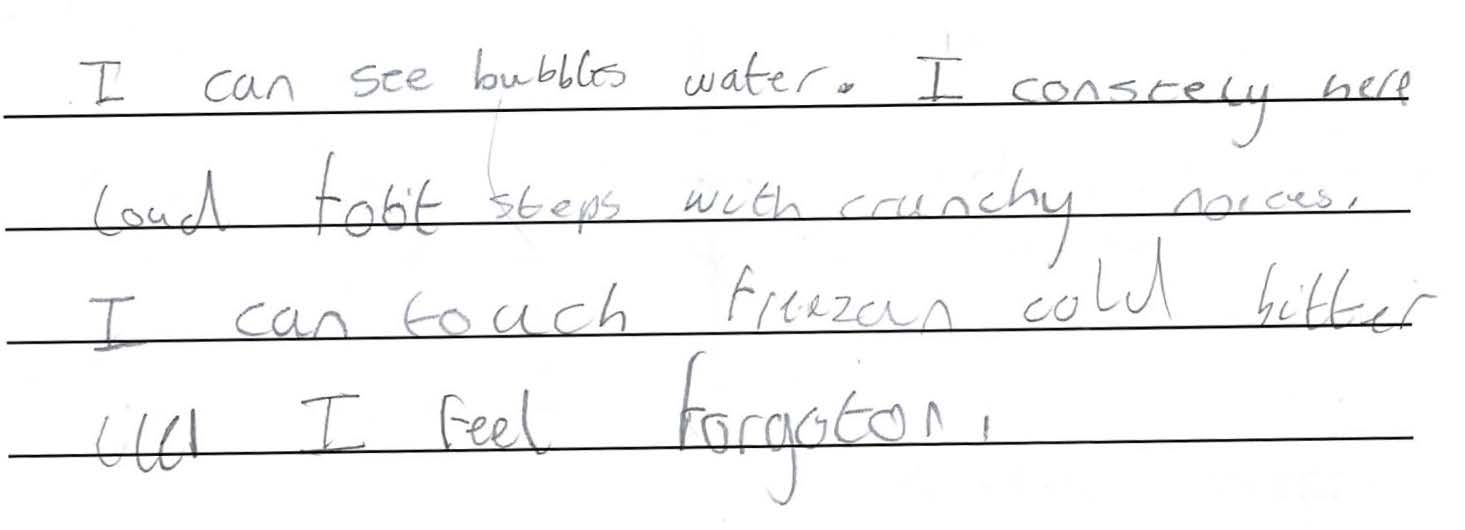 I can see bubbles water. I constely here
loud foot steps with crunchy noices.
I can touch freezan cold bitter
I feel forgoton.